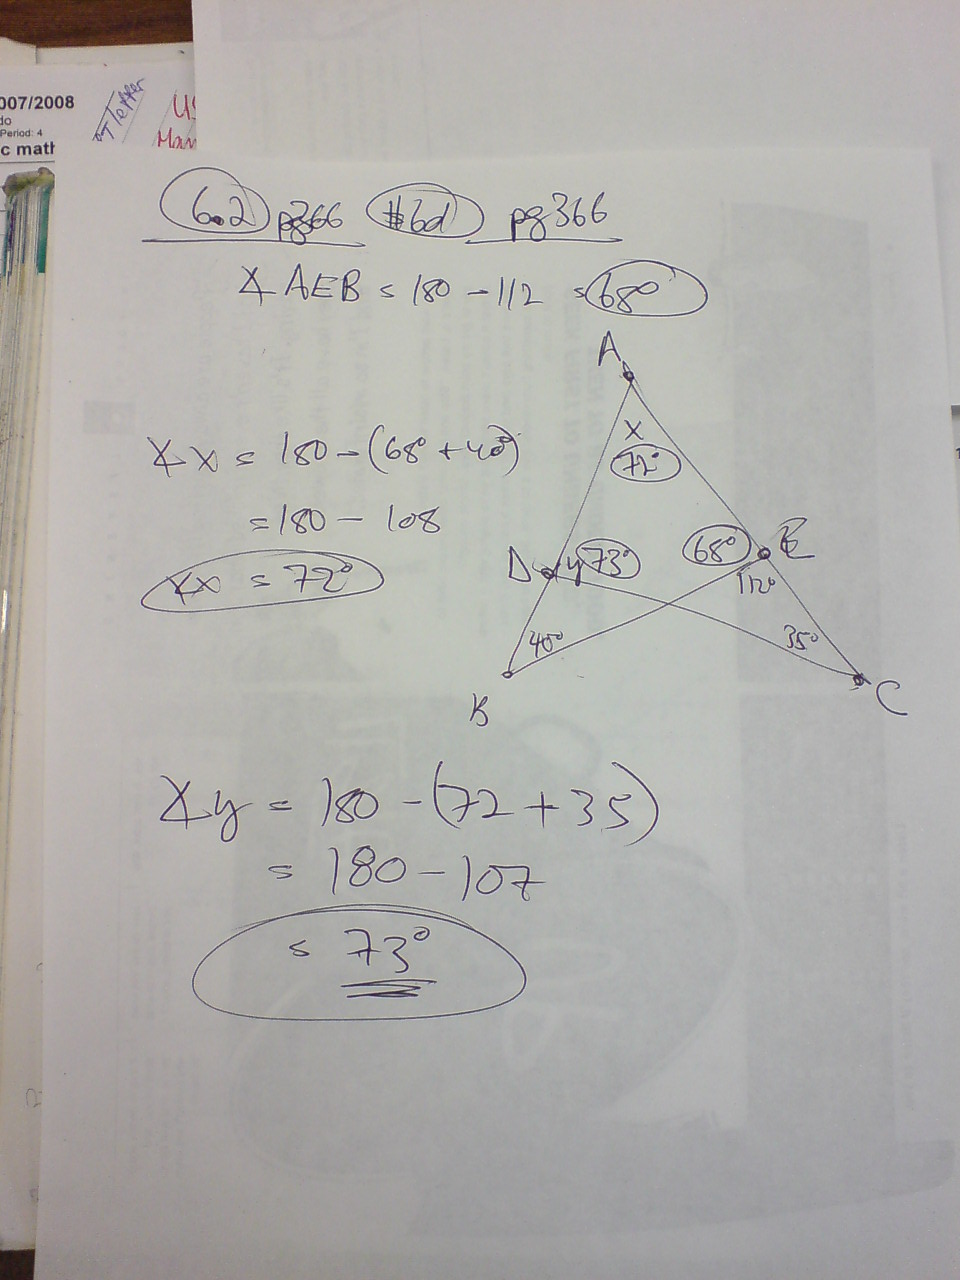 007/2008
do
Period: 4
c math
letter
US
Man
6.2 pg366 #6d pg366
∡ AEB = 180 - 112 = 68°
A
x
72°
∡x = 180 - (68° + 40°)
= 180 - 108
∡x = 72°
D y 73° 68° E
112°
40° 35°
B C
∡y = 180 - (72 + 35)
= 180 - 107
= 73°